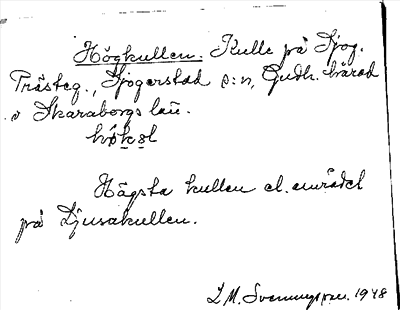 Högkullen. Kulle på Sjog.
Trästeg., Sjogerstad s:n, Gudh. härad
i Skaraborgs län.
Högsta kullen el. området
på Ljusakullen.
L. M. Svenungsson. 1948